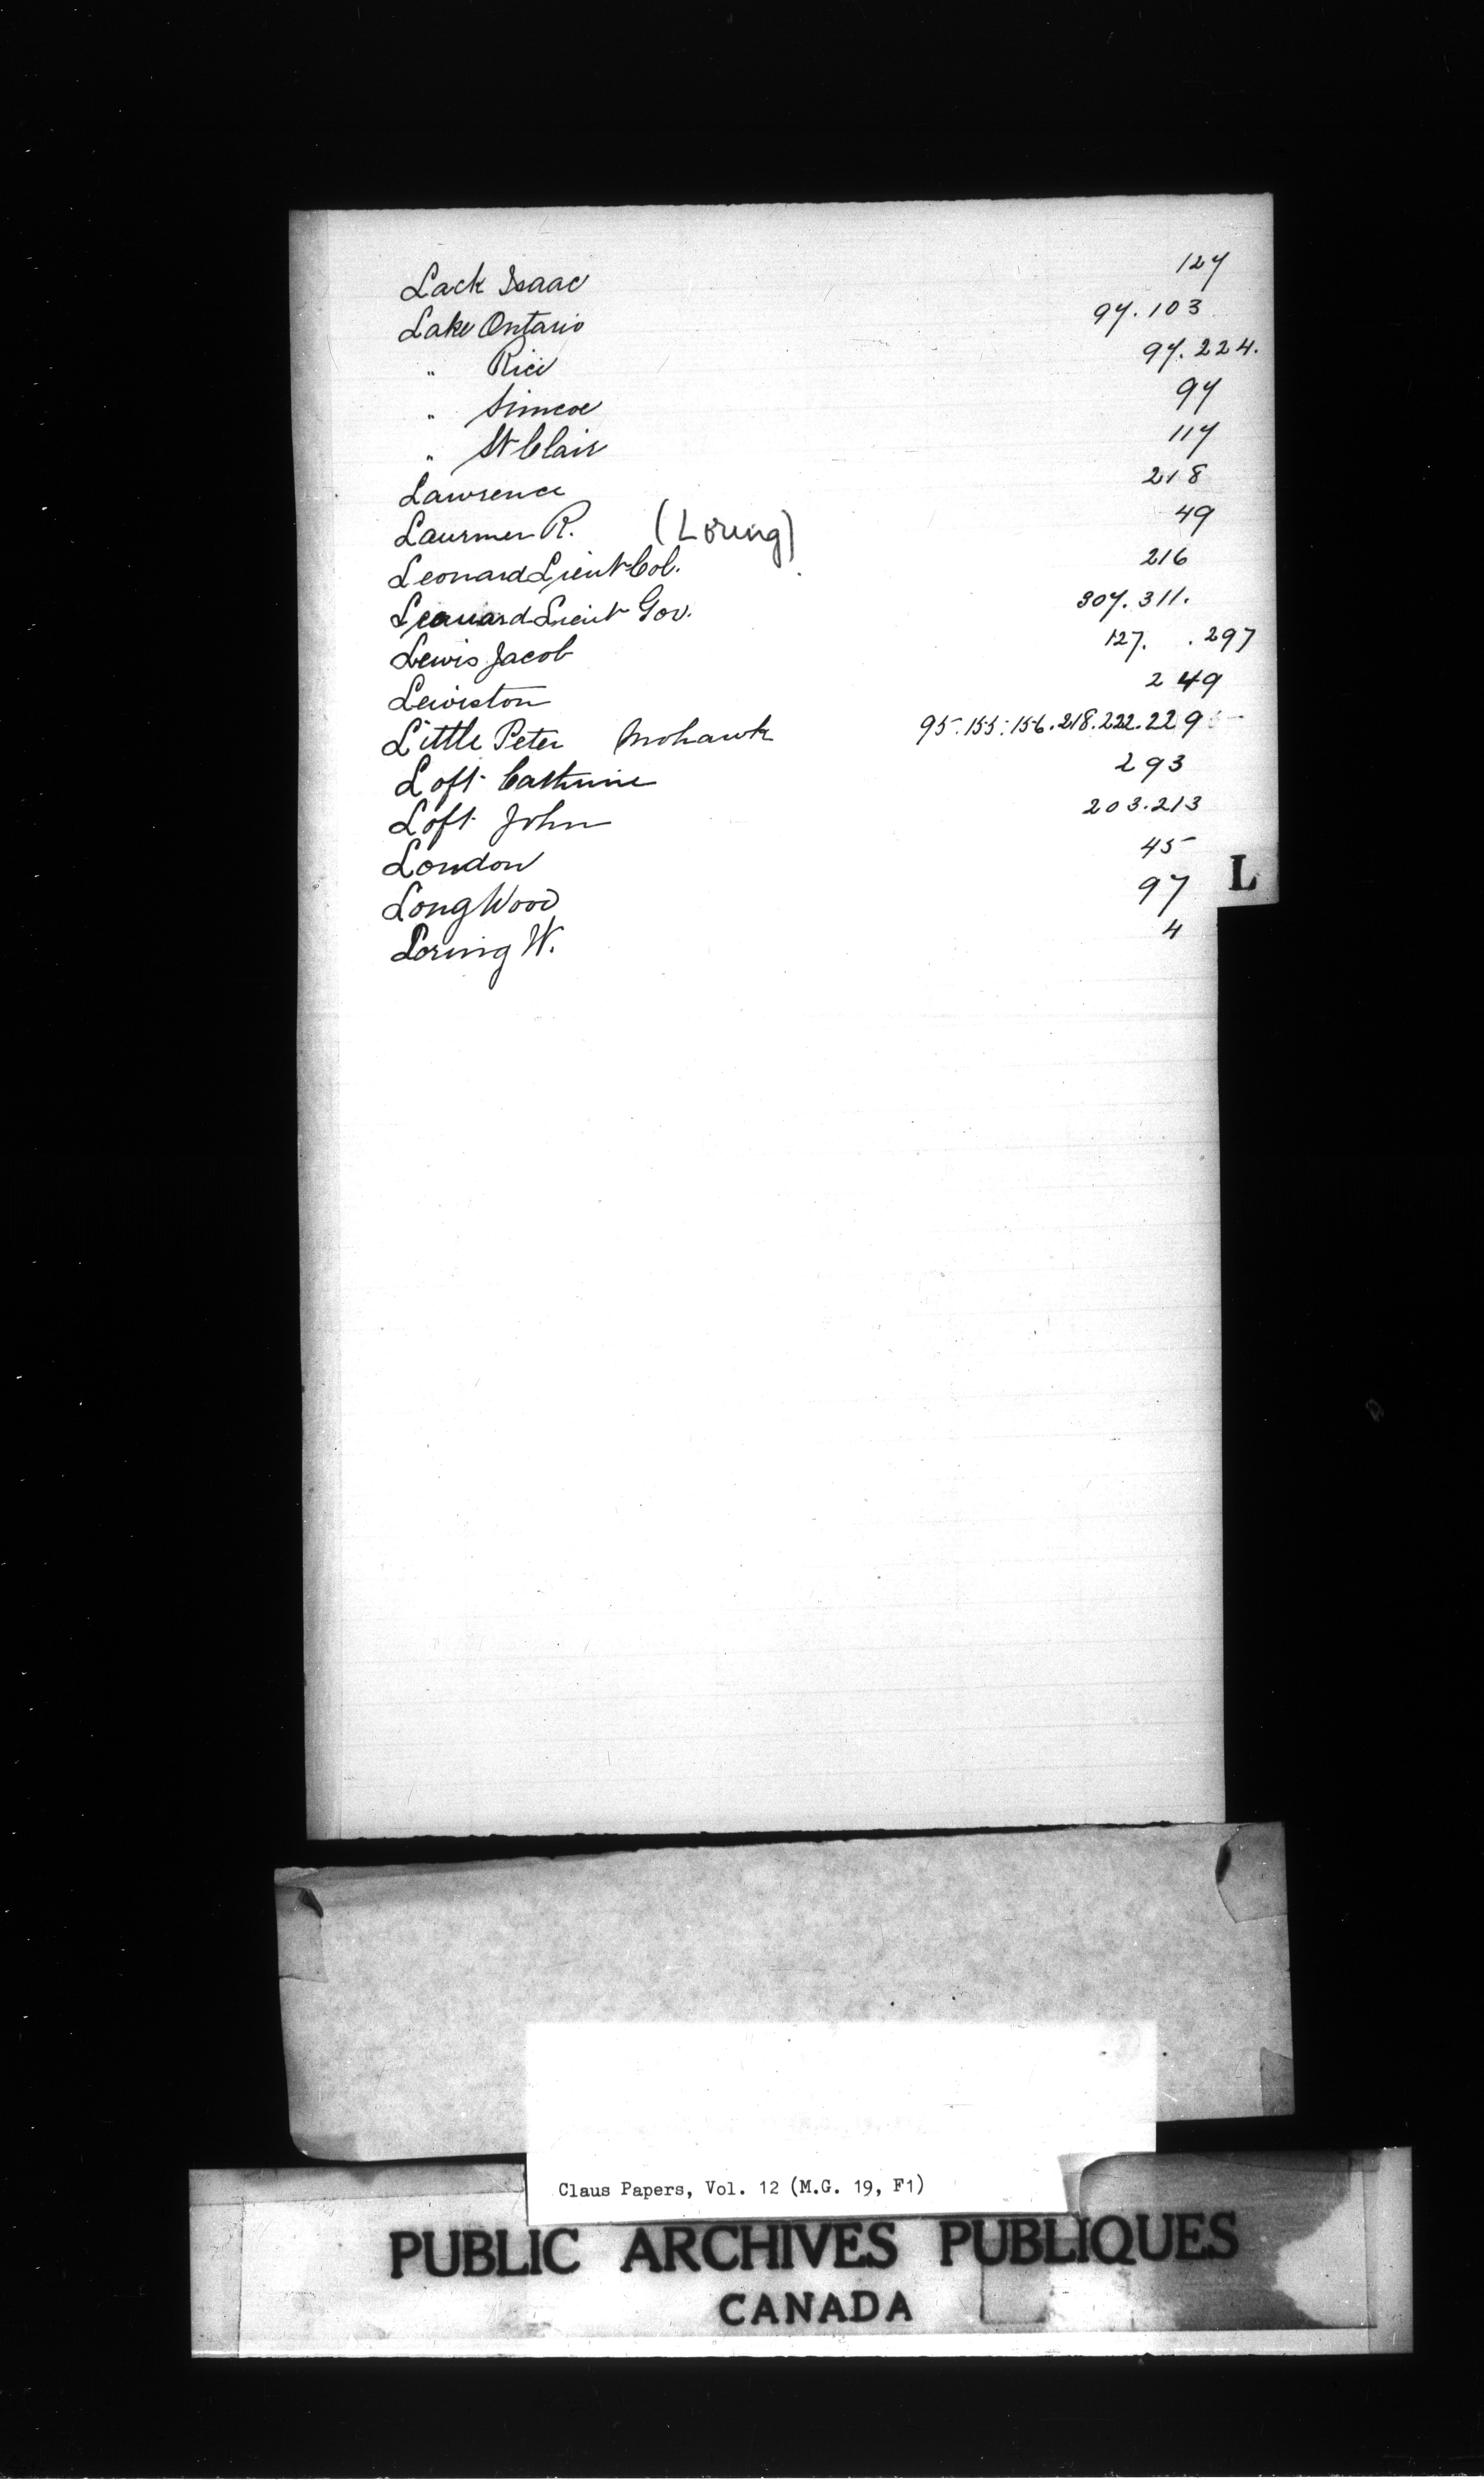 Lack Isaac 127
Lake Ontario 97. 103
" Rice 97. 224.
" Simcoe 97
" St Clair 117
Lawrence 218
Laurmen R. (Loring) 49
Leonard Lieut Col. 216
Leonard Lieut Gov. 307. 311.
Lewis Jacob 127. . 297
Lewiston 249
Little Peter Mohawk 95. 155. 156. 218. 222. 229
Loft Catherine 293
Loft John 203. 213
London 45
Long Wood 97
L
Loring W. 4
Claus Papers, Vol. 12 (M.G. 19, F1)
PUBLIC ARCHIVES PUBLIQUES
CANADA